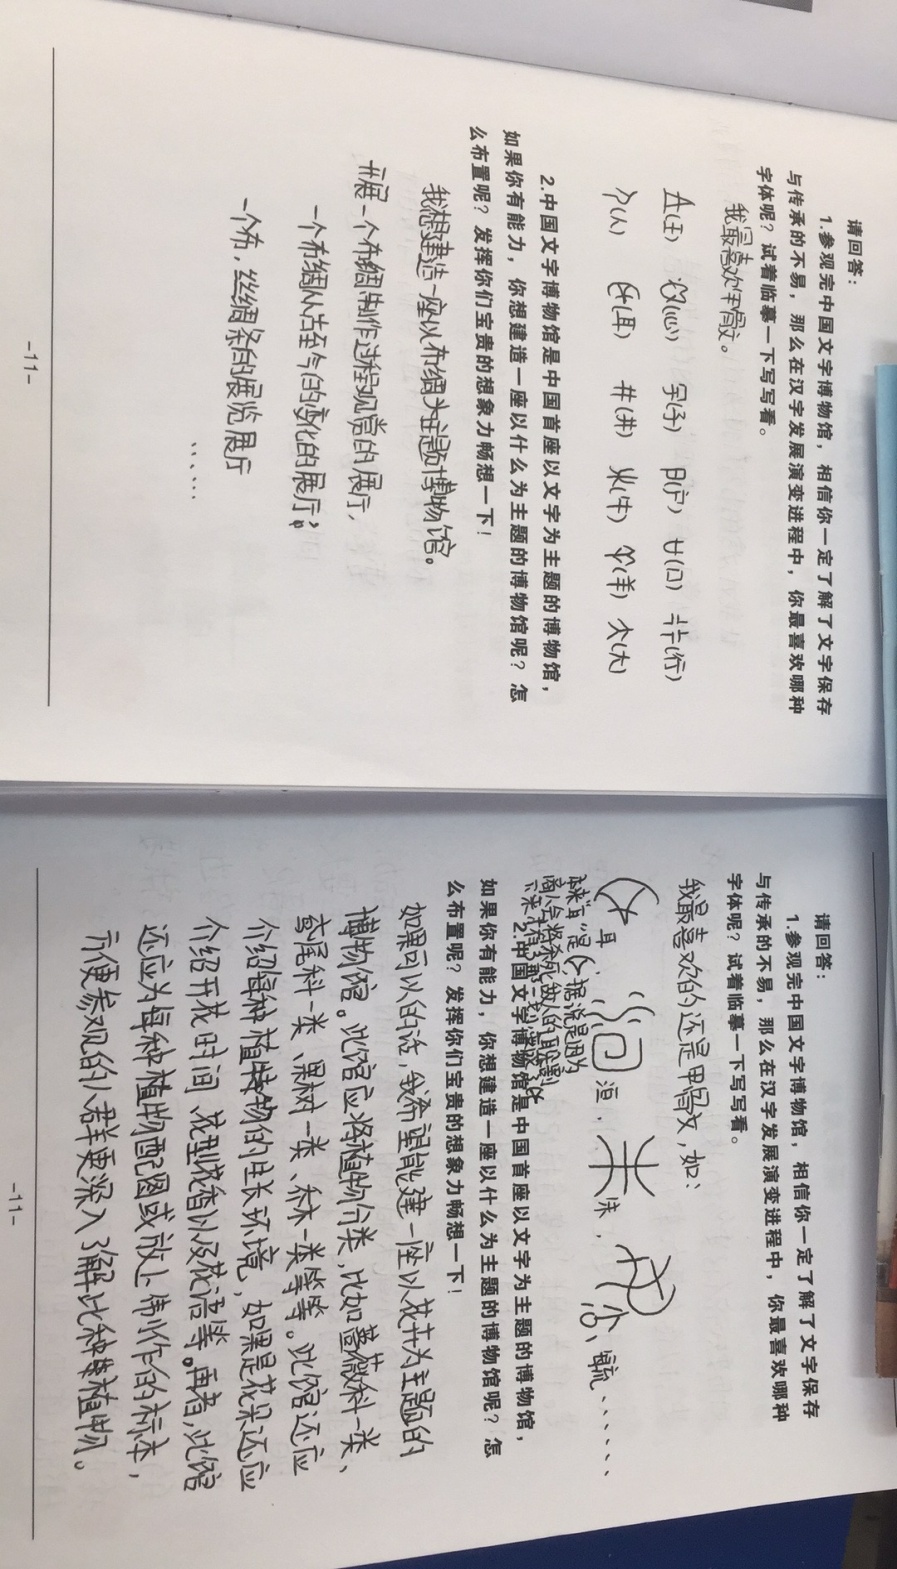 请回答：
1.参观完中国文字博物馆，相信你一定了解了文字保存
与传承的不易，那么在汉字发展演变进程中，你最喜欢哪种
字体呢？试着临摹一下写写看。
我最喜欢甲骨文。
(王) (心) (子) (户) (口) (行)
(人) (耳) (井) (牛) (羊) (大)
2.中国文字博物馆是中国首座以文字为主题的博物馆，
如果你有能力，你想建造一座以什么为主题的博物馆呢？怎
么布置呢？发挥你们宝贵的想象力畅想一下！
我想建造一座以布绸为主题博物馆。
开展一个布绸制作过程观赏的展厅，
一个布绸从古至今的变化的展厅；
一个布，丝绸条的展览展厅
……
-11-
请回答：
1.参观完中国文字博物馆，相信你一定了解了文字保存
与传承的不易，那么在汉字发展演变进程中，你最喜欢哪种
字体呢？试着临摹一下写写看。
我最喜欢的还是甲骨文，如：
耳 洹，
据说是因为
2.中国文字博物馆是中国首座以文字为主题的博物馆，
如果你有能力，你想建造一座以什么为主题的博物馆呢？怎
么布置呢？发挥你们宝贵的想象力畅想一下！
如果可以的话，我希望能建一座以花卉为主题的
博物馆。此馆应将植物分类，比如蔷薇科一类、
鸢尾科一类、果树一类、林一类等等。此馆还应
介绍每种植物的生长环境，如果是花朵还应
介绍开花时间、花型花香以及花语等。再者，此馆
还应为每种植物配图或放上制作的标本，
方便参观的人群更深入了解此种植物。
-11-